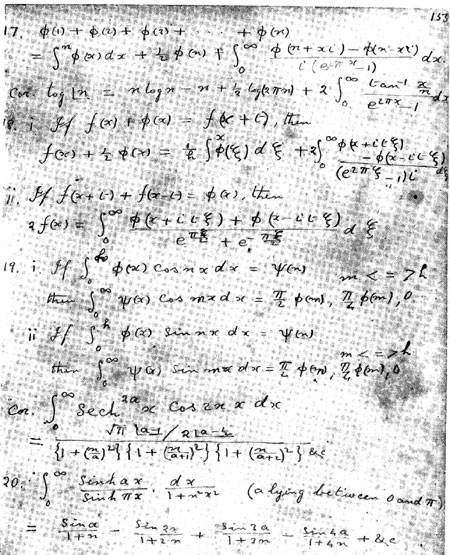 153
17. φ(1) + φ(2) + φ(3) + . . . . + φ(n)
= ∫₀ⁿ φ(x) dx + ½ φ(n) + ∫₀^∞ (φ(n+xi) − φ(n−xi)) / (i(e^{2πx} − 1)) dx.
Cor. log |n = n log n − n + ½ log(2πn) + 2 ∫₀^∞ (tan⁻¹ x/n) / (e^{2πx} − 1) dx
18. i. If f(x) + φ(x) = f(x + t), then
f(x) + ½ φ(x) = 1/t ∫ˣ φ(ξ) dξ + 2∫₀^∞ (φ(x+itξ) − φ(x−itξ)) / ((e^{2πξ} − 1)i) dξ
ii. If f(x+t) + f(x−t) = φ(x), then
2f(x) = ∫₀^∞ (φ(x+itξ) + φ(x−itξ)) / (e^{πξ/2} + e^{−πξ/2}) dξ
19. i If ∫₀^h φ(x) cos nx dx = ψ(n) m < = > h
then ∫₀^∞ ψ(x) cos mx dx = π/2 φ(m), π/4 φ(m), 0
ii If ∫₀^h φ(x) sin nx dx = ψ(n) m < = > h
then ∫₀^∞ ψ(x) sin mx dx = π/2 φ(m), π/4 φ(m), 0
Cor. ∫₀^∞ Sech^{2a} x Cos 2n x dx
= (√π |a−1 / 2|a−½) / ({1 + (n/a)²}{1 + (n/(a+1))²}{1 + (n/(a+2))²} &c)
20. i ∫₀^∞ (Sinh ax / Sinh πx) · dx / (1 + n²x²) (a lying between 0 and π)
= Sin a / (1+n) − Sin 2a / (1+2n) + Sin 3a / (1+3n) − Sin 4a / (1+4n) + &c